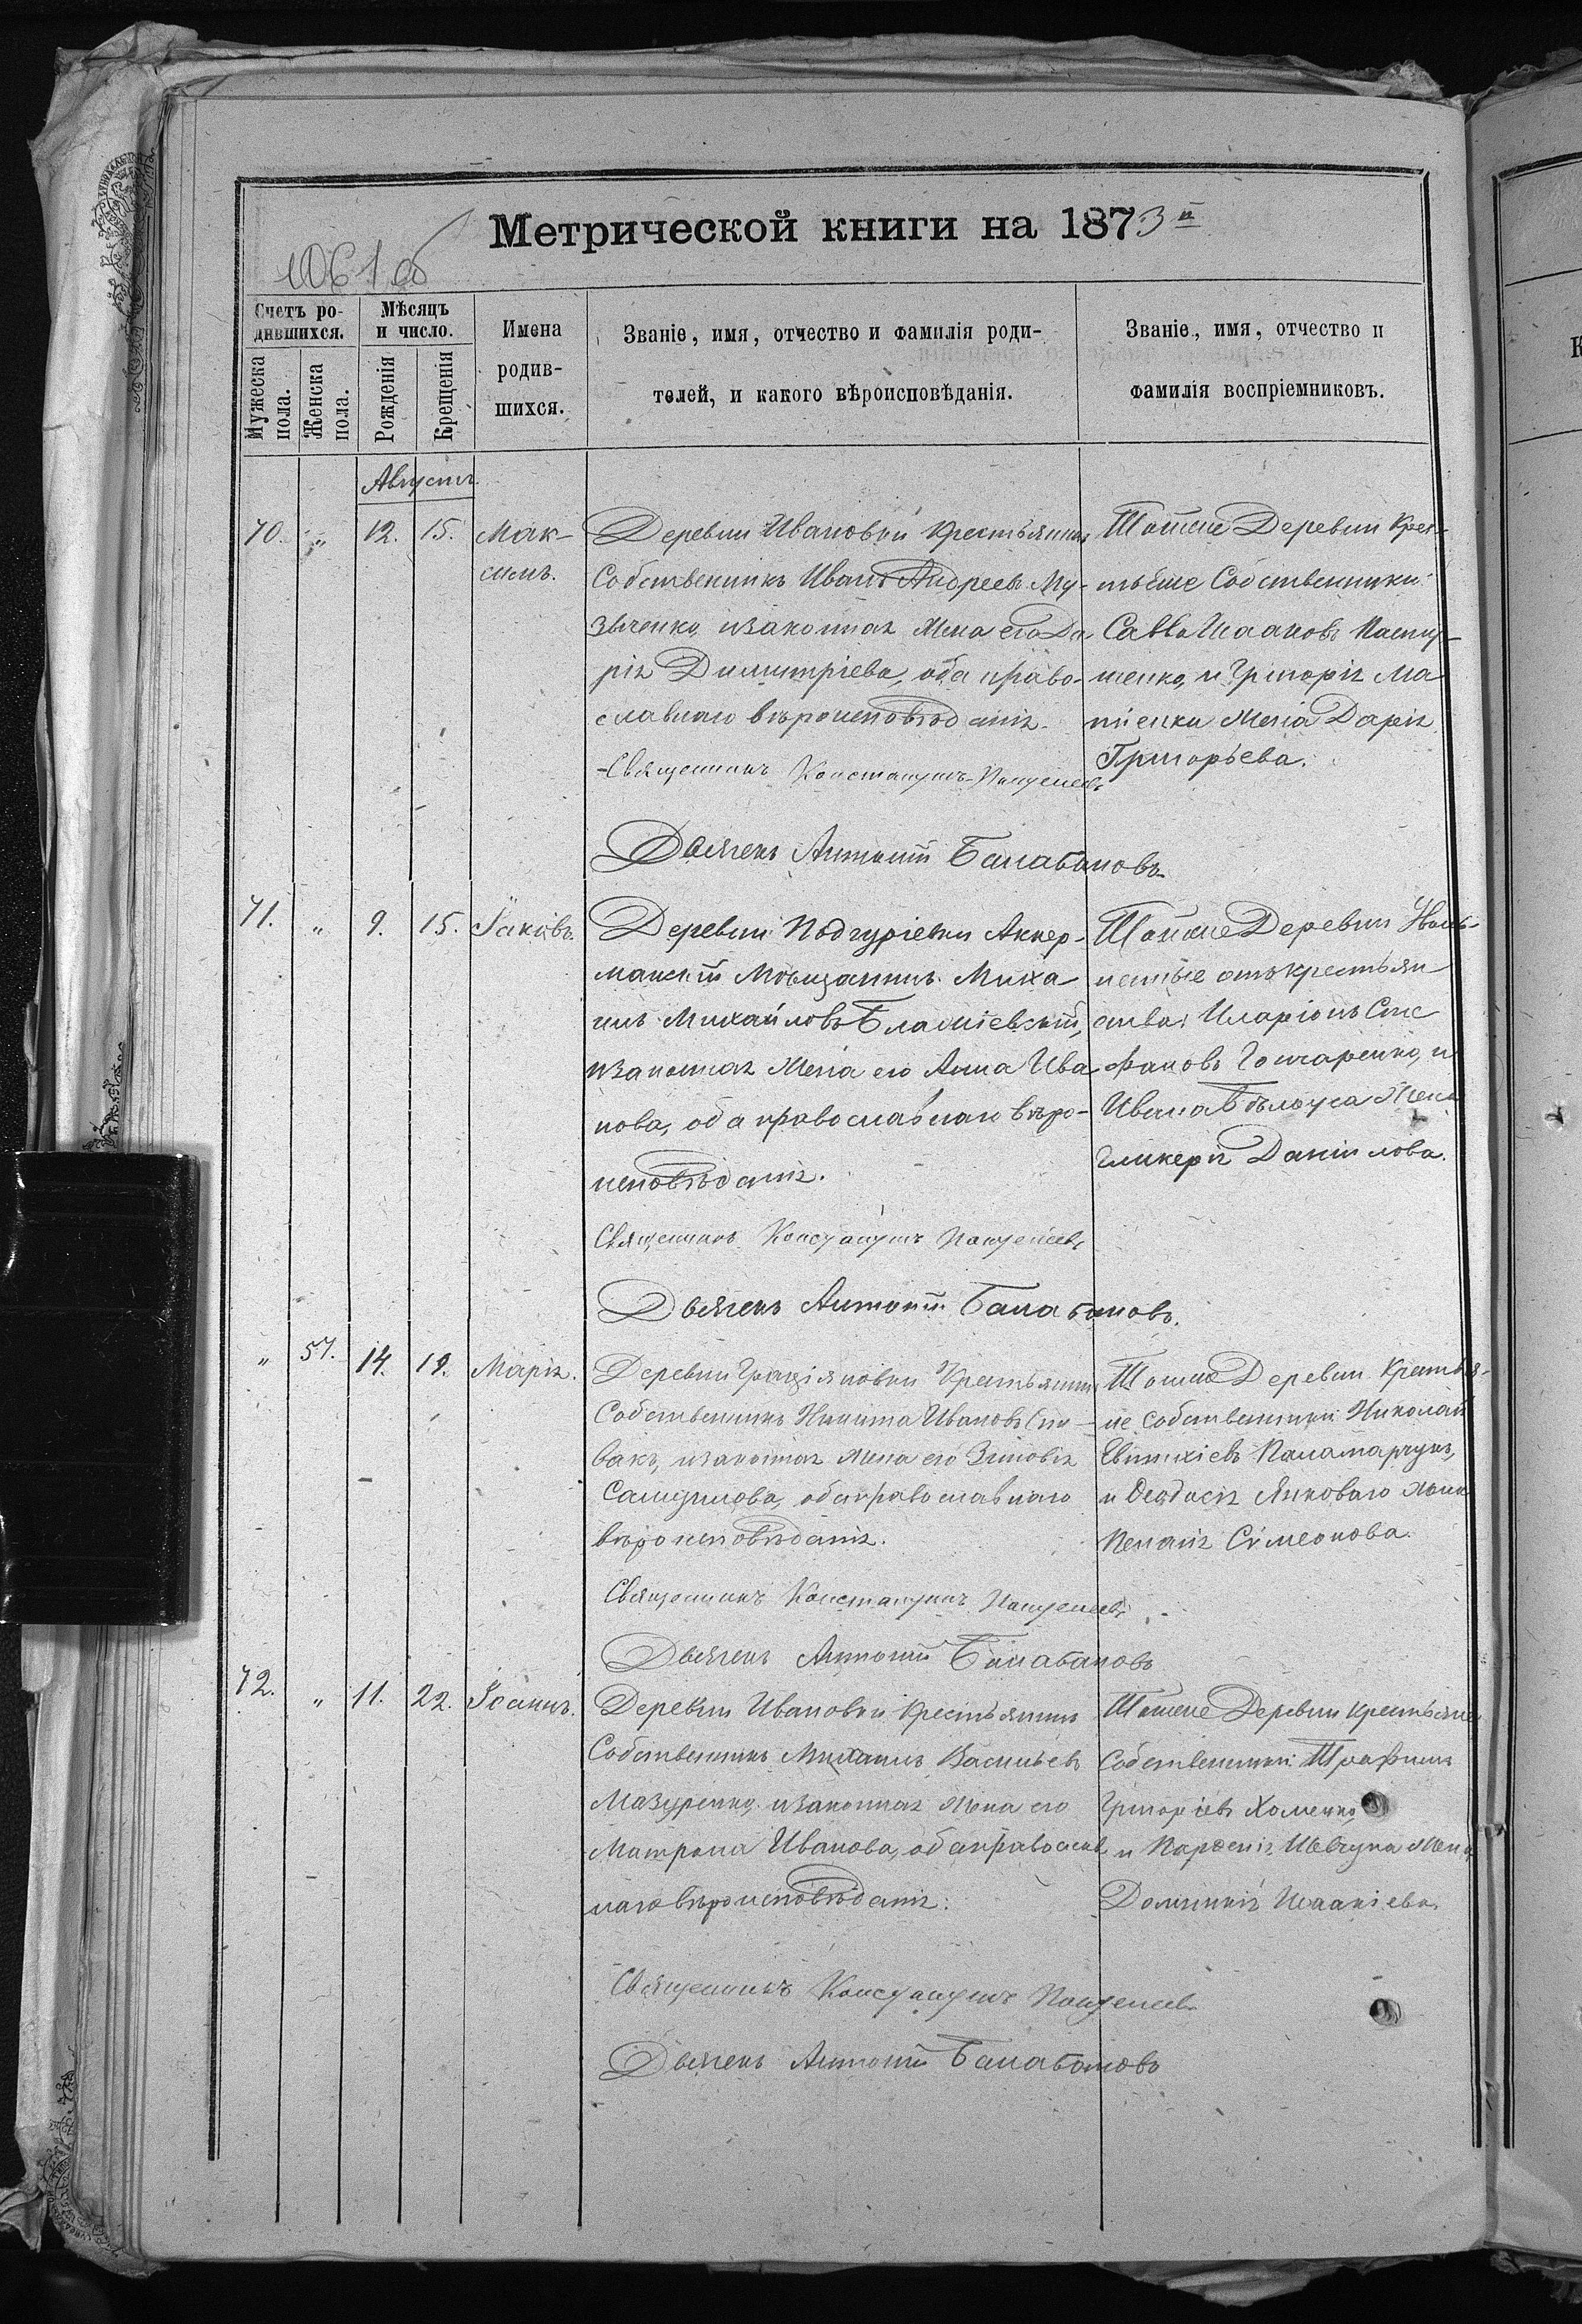 Метрической книги на 1873 й
1061 об
Счетъ ро-
дившихся.
Мѣсяцъ
и число.
Имена
родив-
шихся.
Званіе, имя, отчество и фамилія роди-
телей, и какого вѣроисповѣданія.
Званіе, имя, отчество и
фамилія воспріемниковъ.
Мужеска
пола.
Женска
пола.
Рожденія
Крещенія
Августъ.
70. „ 12. 15. Мак-
симъ.
Деревни Ивановки Крестьянинъ
Собственникъ Иванъ Андреевъ Му-
зыченко, изаконная жена его Да-
рія Димитріева, оба право-
славнаго вѣроисповѣданія.
Священникъ Константинъ
Дьячекъ Антоній Балабановъ
Тойже Деревни Крес-
тьяне Собственники:
Савва Исааковъ
и Григорія Ма
жена Дарія
Григорьева.
71. „ 9. 15. Іаковъ.
Деревни Подгуріевки Аккер-
манскій Мѣщанинъ Миха-
илъ Михайловъ
изаконная жена его Анна Ива-
нова, оба православнаго вѣро-
исповѣданія.
Священникъ Константинъ
Дьячекъ Антоній Балабановъ.
Тойже Деревни
отъ крестьян
ства: Иларіонъ Сте
фановъ Гончаренко, и
Ивана Бѣлоуса жена
Гликерія Даніилова.
„ 57. 14. 19. Марія.
Деревни Граціяновки Крестьянинъ
Собственникъ Никита Ивановъ Спи-
вакъ, изаконная жена его Зиновія
Самуилова, оба православнаго
вѣроисповѣданія.
Священникъ Константинъ
Дьячекъ Антоній Балабановъ
Тойже Деревни Крестья-
не собственники: Николай
Евтихіевъ Паламарчукъ,
и Ѳеодосія Янковаго жена
Пелагія Сѵмеонова.
72. „ 11. 22. Іоаннъ.
Деревни Ивановки Крестьянинъ
Собственникъ Михаилъ Васильевъ
Мазуренко, изаконная жена его
Матрона Иванова, оба православ
наго вѣроисповѣданія:
Священникъ Константинъ
Дьячекъ Антоній Балабановъ
Тойже Деревни Крестьяне
Собственники: Трофимъ
Григоріевъ Хоменко,
и Парѳенія Шевчука жена
Домникія Исаакіева.